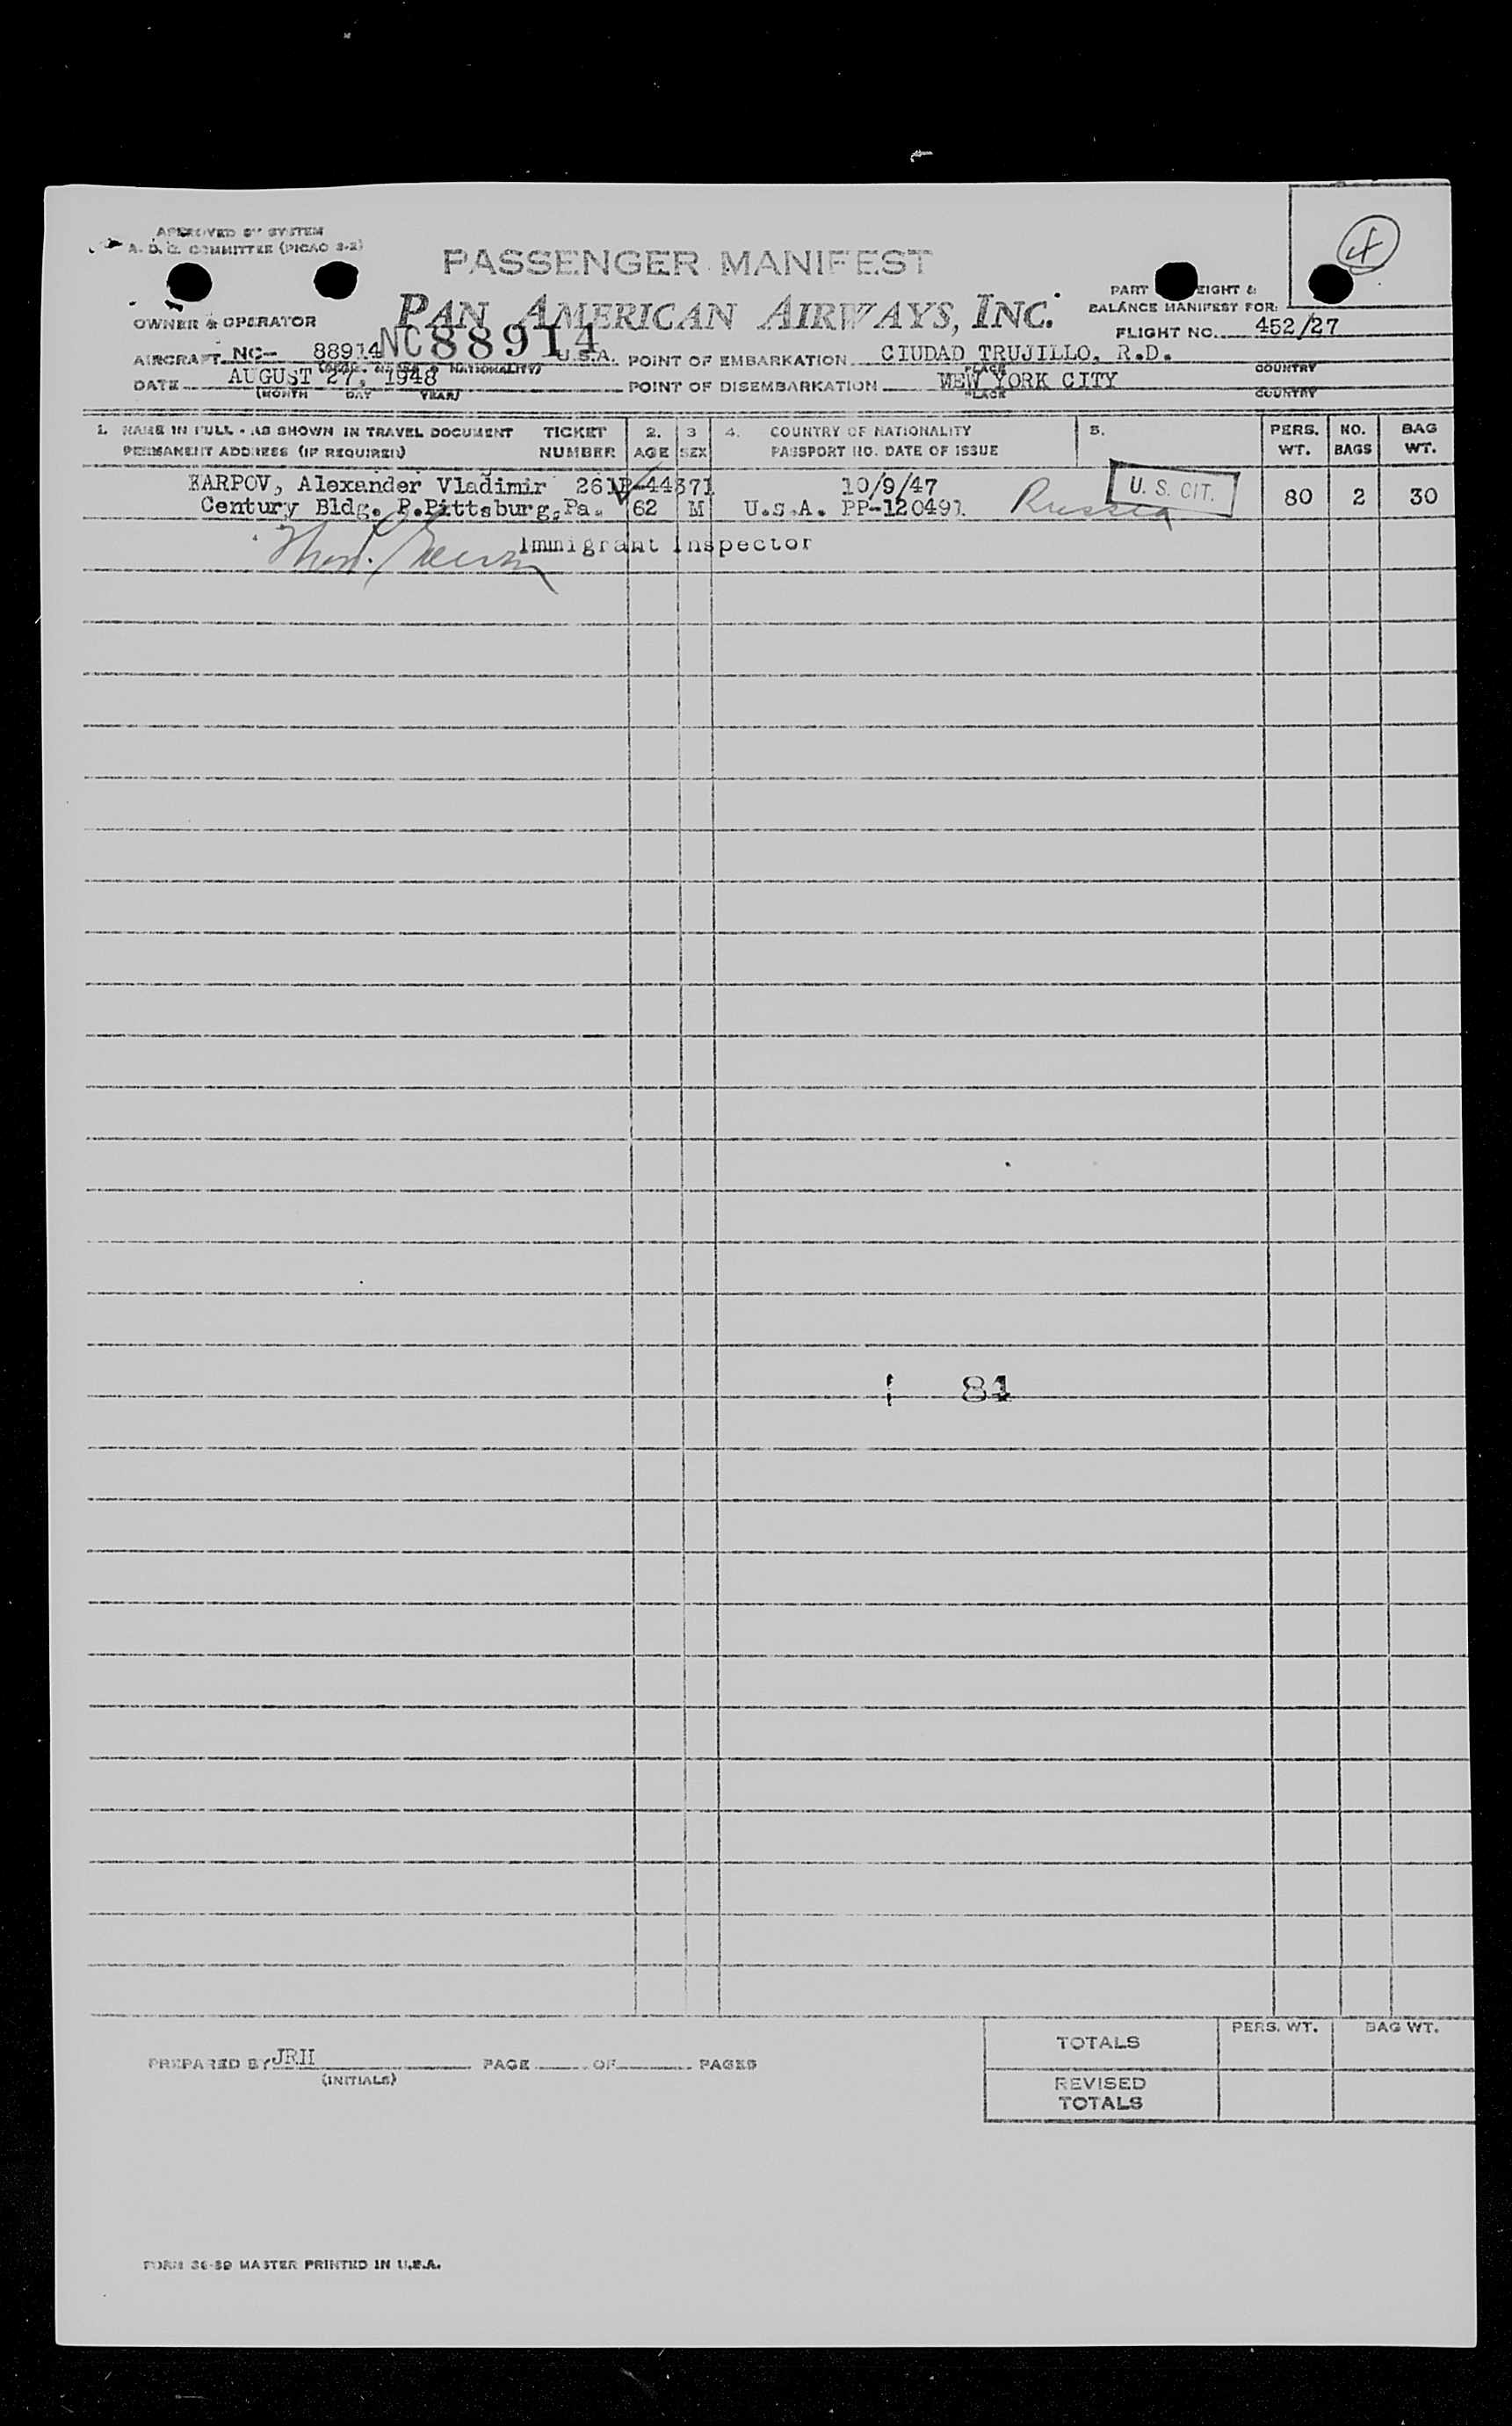 APPROVED BY SYSTEM
A. D. C. COMMITTEE (PICAO 2-2)
PASSENGER MANIFEST
PART EIGHT &
BALANCE MANIFEST FOR:
OWNER & OPERATOR PAN AMERICAN AIRWAYS, INC.
FLIGHT NO. 452/27
AIRCRAFT NC- 88914 NC88914 U.S.A. POINT OF EMBARKATION CIUDAD TRUJILLO, R.D.
NATIONALITY) PLACE COUNTRY
DATE AUGUST 27, 1948 POINT OF DISEMBARKATION NEW YORK CITY
(MONTH DAY YEAR) PLACE COUNTRY
1. NAME IN FULL - AS SHOWN IN TRAVEL DOCUMENT TICKET 2. 3 4. COUNTRY OF NATIONALITY 5. PERS. NO. BAG
PERMANENT ADDRESS (IF REQUIRED) NUMBER AGE SEX PASSPORT NO. DATE OF ISSUE WT. BAGS WT.
KARPOV, Alexander Vladimir 10/9/47 U. S. CIT.
Century Bldg. P.Pittsburg,Pa. 62 M U.S.A. PP-120491 Russia 80 2 30
Immigrant Inspector
84
TOTALS PERS. WT. BAG WT.
PREPARED BY JRH PAGE OF PAGES
(INITIALS)
REVISED
TOTALS
FORM 36-39 MASTER PRINTED IN U.S.A.